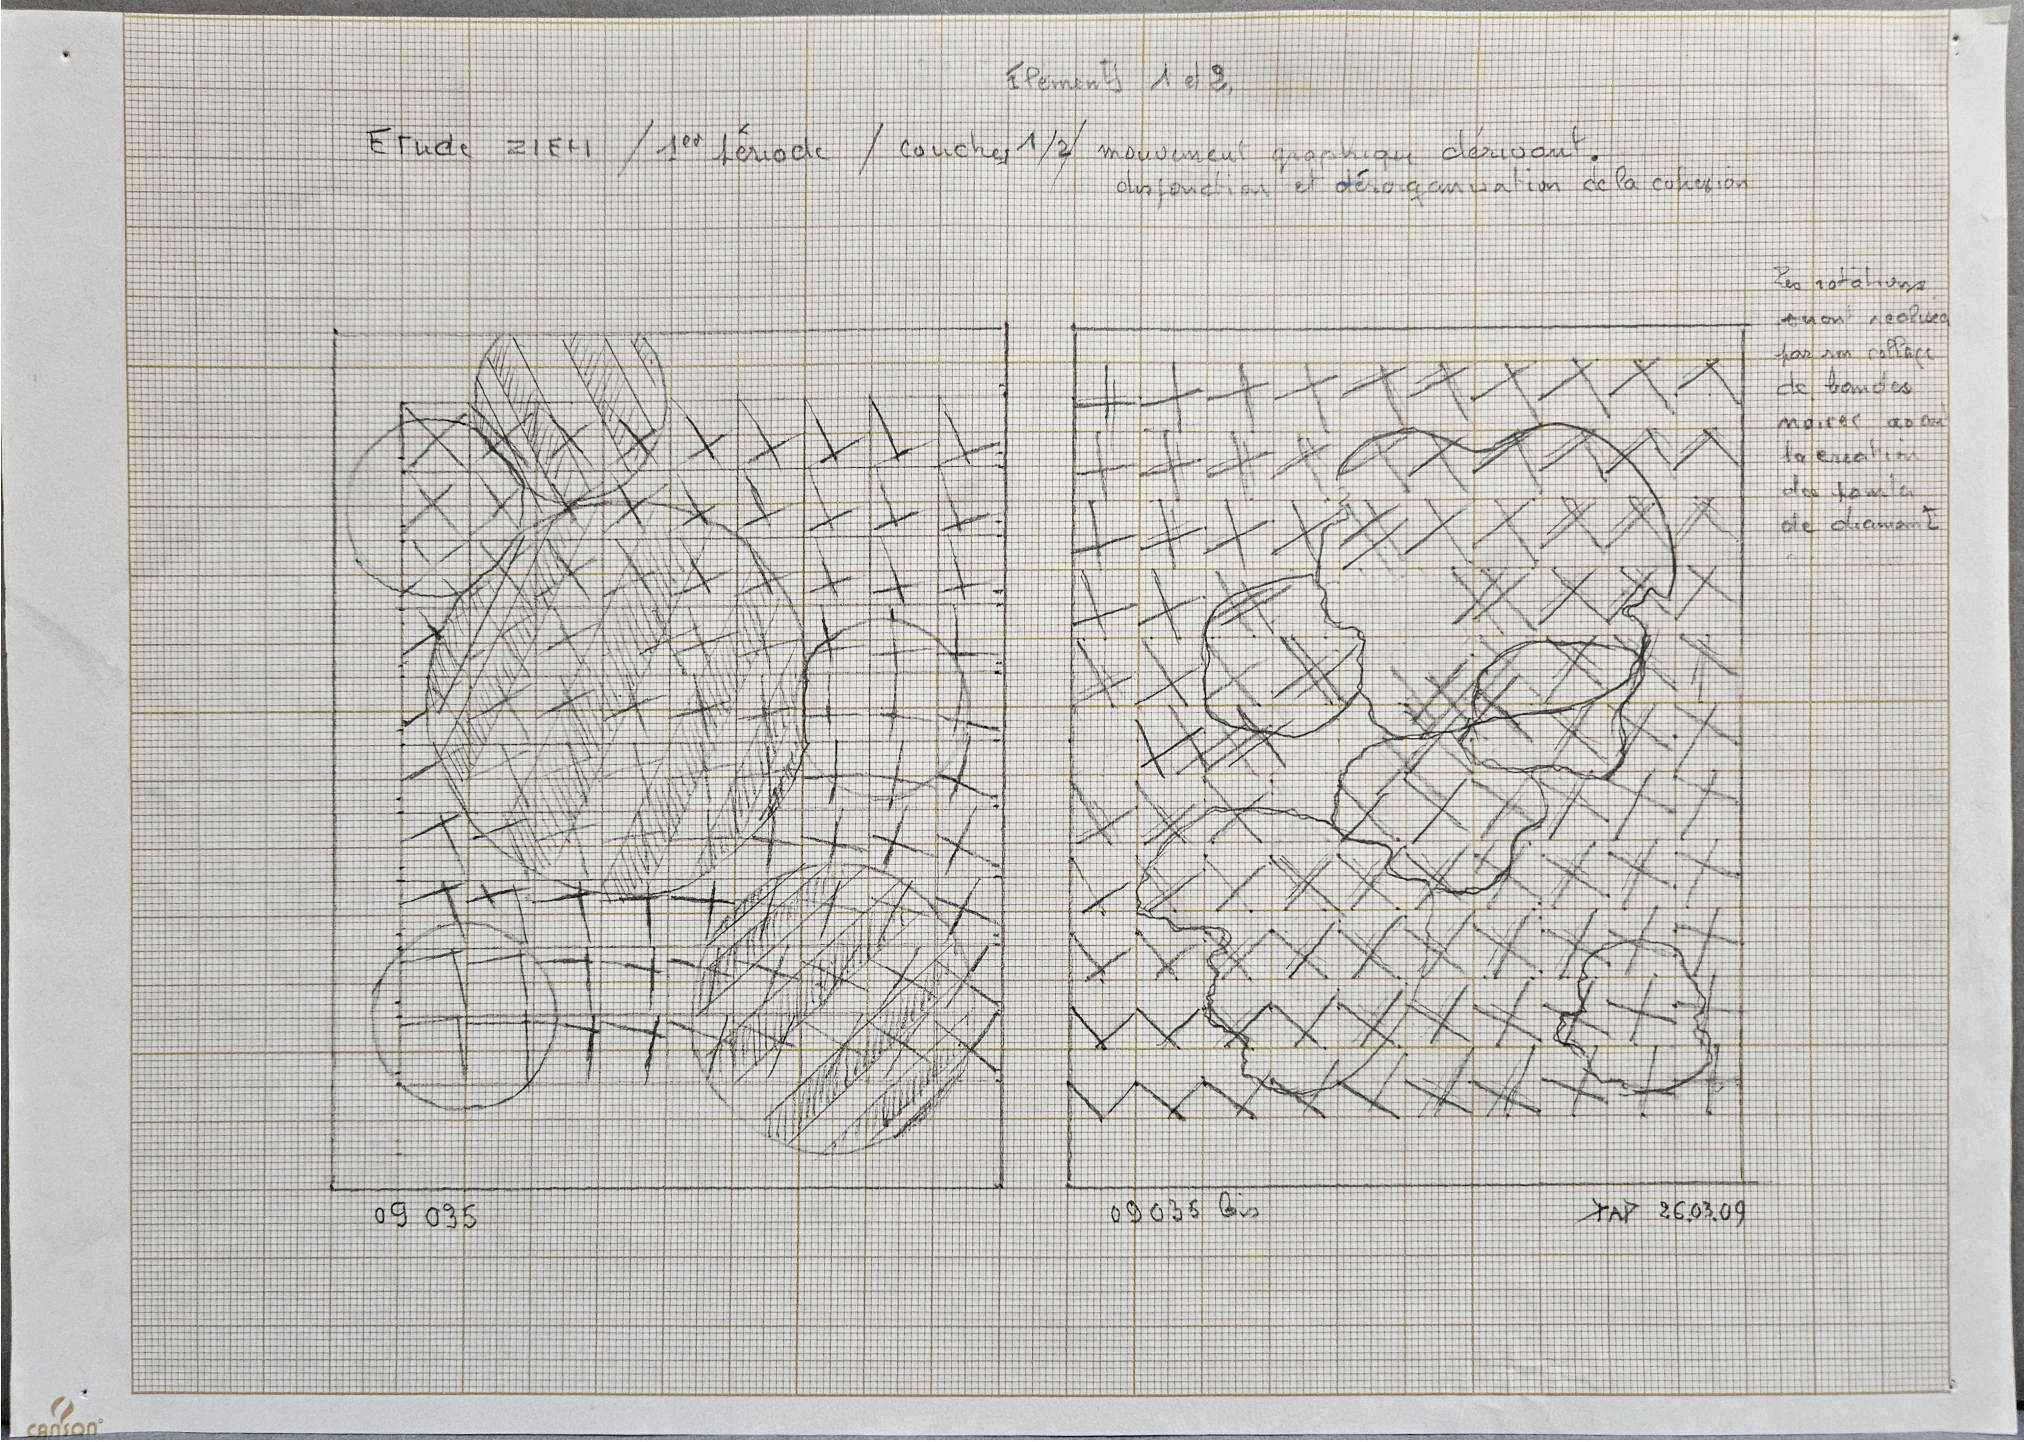 Elements 1 et 2.
Etude ZIEM / 1er période / couches 1/2/ mouvement graphique dérivant.
disjonction et désorganisation de la cohesion
Les rotations
seront realisées
par un collage
de bandes
noires avant
la creation
des points
de diamant
09 035
09035 bis
26.03.09
canson